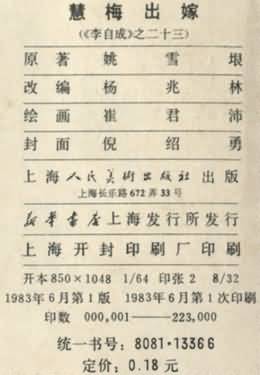 慧梅出嫁
(《李自成》之二十三)
原著 姚雪垠
改编 杨兆林
绘画 崔君沛
封面 倪绍勇
上海人民美术出版社出版
上海长乐路672弄33号
新华书店上海发行所发行
上海开封印刷厂印刷
开本850×1048 1/64 印张2 8/32
1983年6月第1版 1983年6月第1次印刷
印数 000,001——223,000
统一书号:8081·13366
定价:0.18元